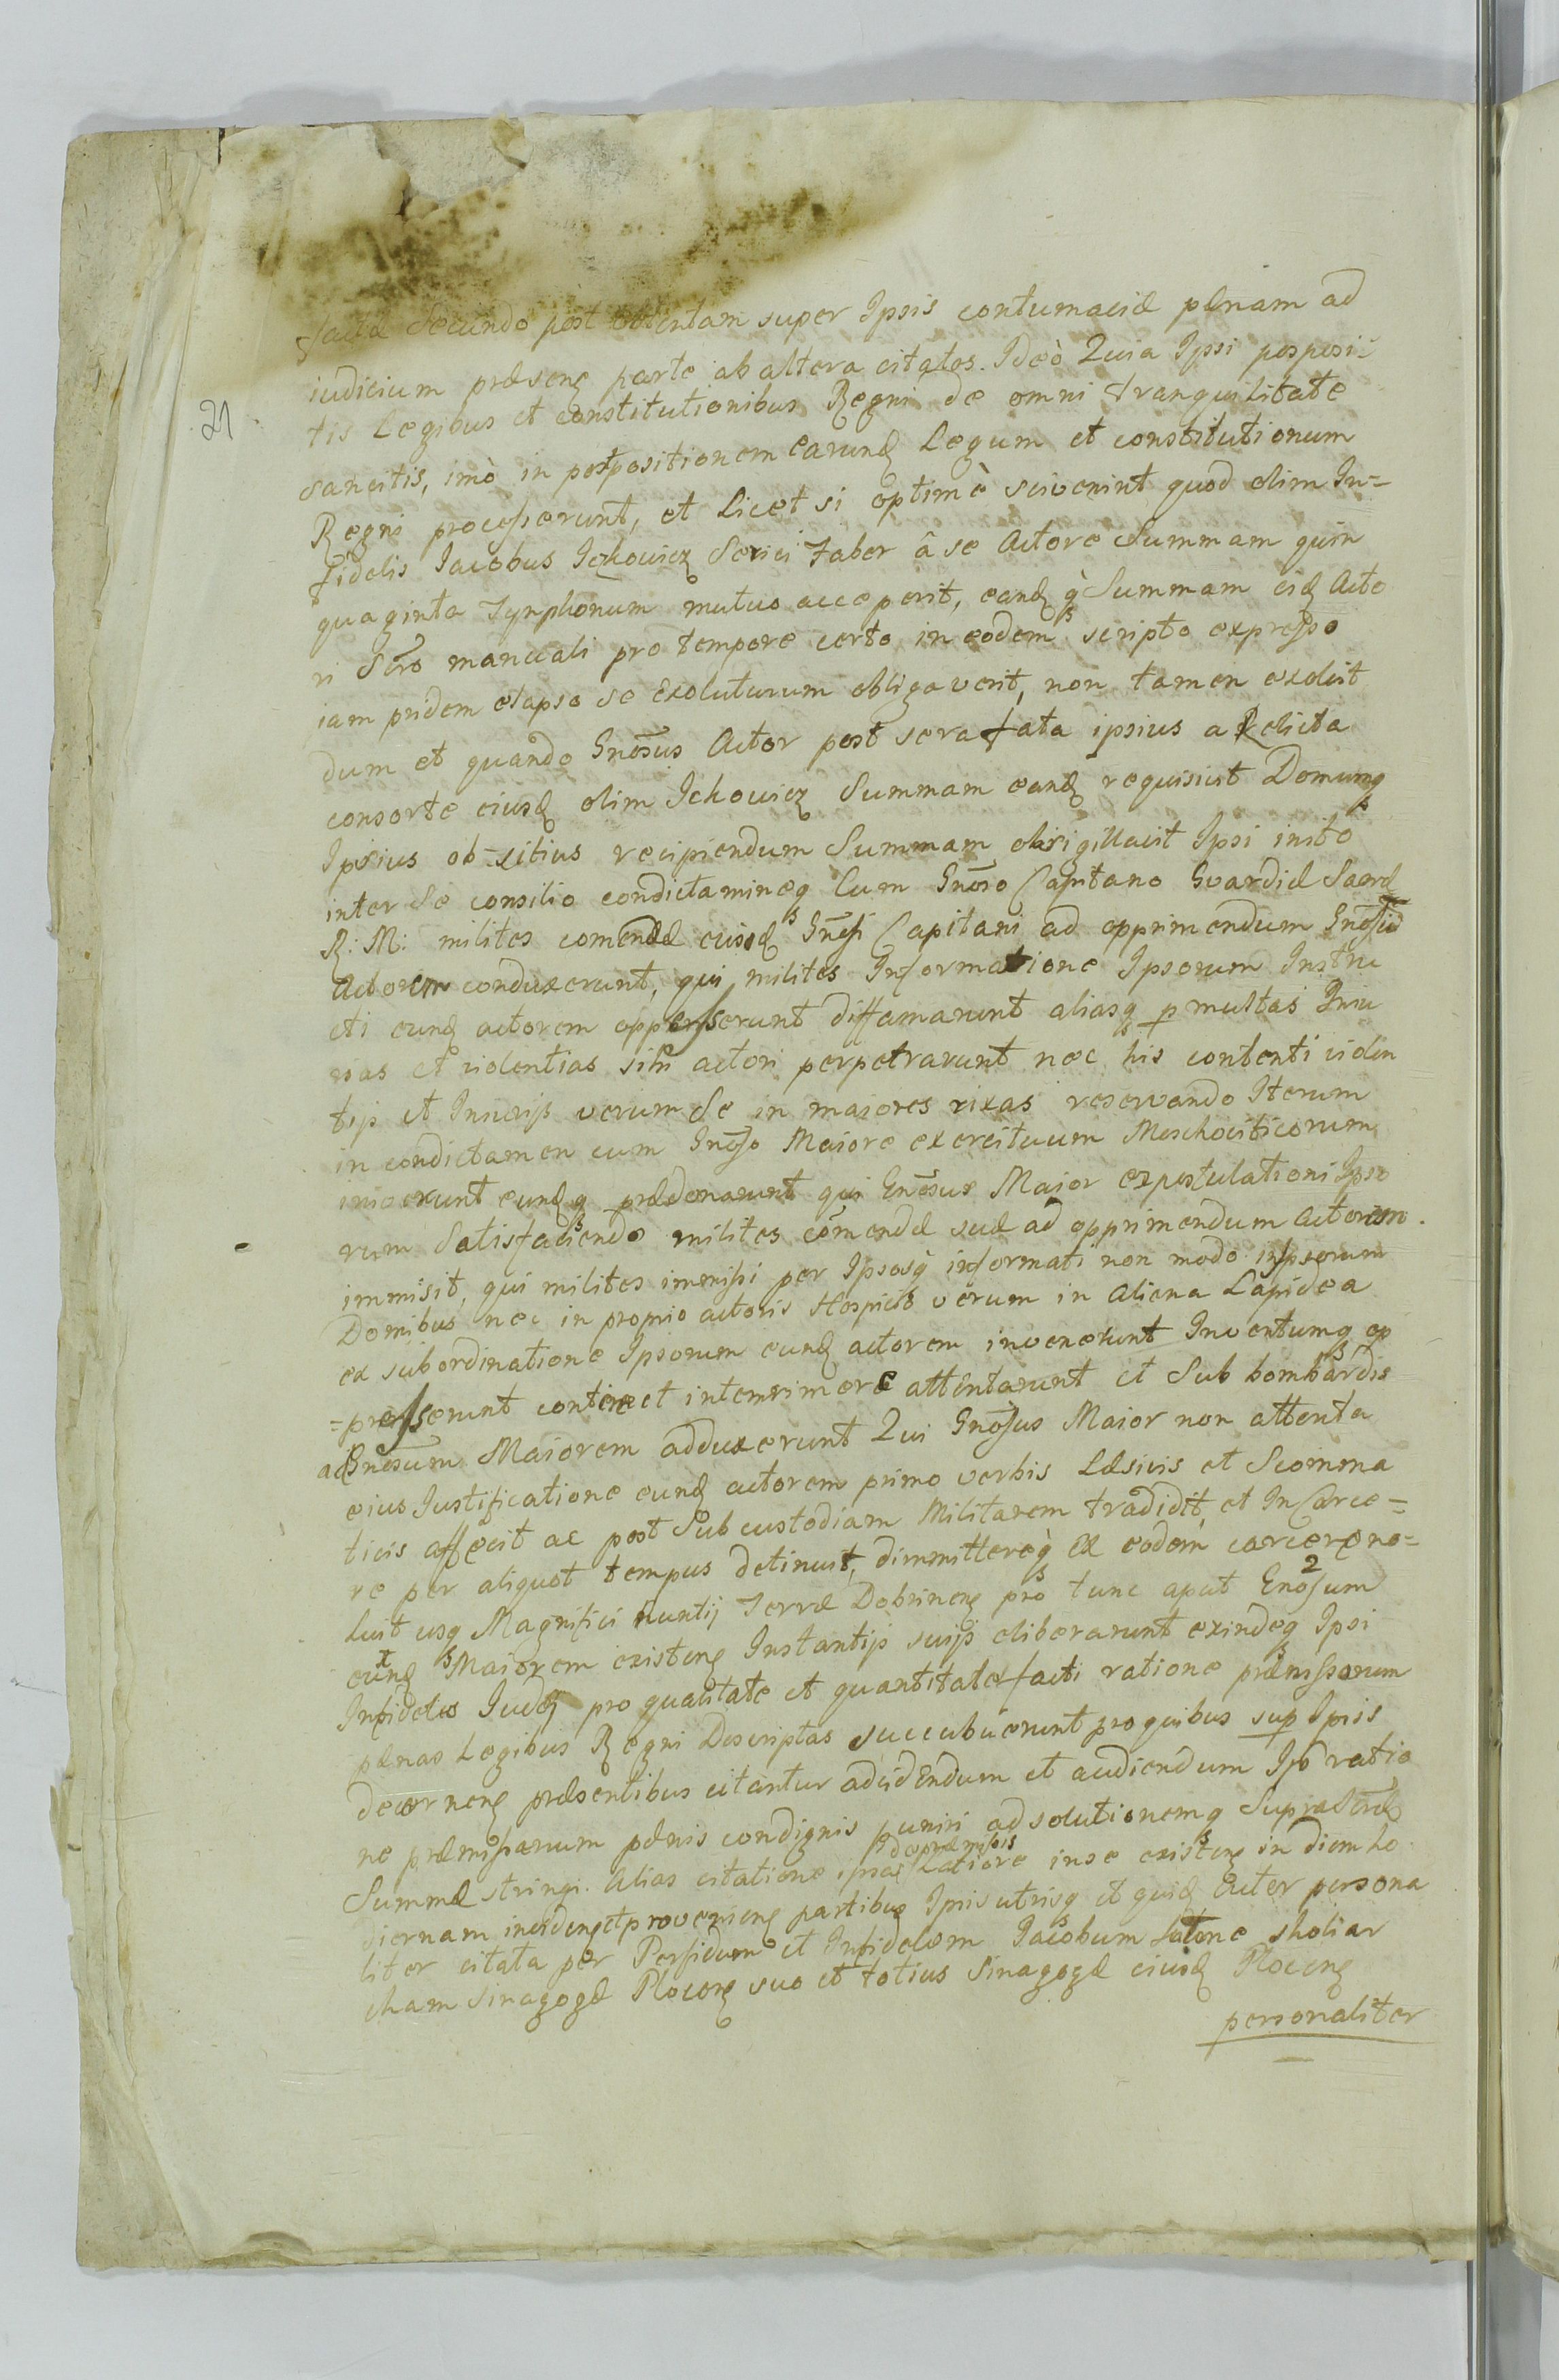 factæ Secundo post obtentam super Ipsis contumaciæ pænam ad
iudicium præsenꝫ parte ab altera citatos. Ideò Quia Ipsi posposi=
tis Legibus et constitutionibus Regni de omni tranquilitate
21
sancitis, imò in postpositionem earundꝫ Legum et constitutionum
Regni processerunt, et Licet si optimè sciverint quod olim In=
fidelis Iacobus Ickowicz Serici Faber â se Actore Summam quin
quaginta Tynphonum mutuo acceperit, eandꝫ qꝫ Summam eidꝫ Acto
ri Scrō manuali pro tempore certo in eodem scripto expresso
iam pridem elapso se Exoluturum obligaverit, non tamen exoluit
dum et quando Gnōsus Actor post sera fata ipsius a Relicta
consorte eiusdꝫ olim Ickowicz Summam eandꝫ requisivit Domumqꝫ
Ipsius ob citius recipiendum Summam obsigillavit Ipsi inito
inter Se consilio condictamineqꝫ Cum Gnōso Capitano Gvardiæ Sacræ
R: M: milites comendæ eiusdꝫ Gnōsi Capitani ad opprimendum Gnōsum
Actorem conduxerunt, qui milites Informatione Ipsorum Instru
cti eundꝫ actorem oppresserunt diffamarunt aliasqꝫ p multas Iniu
rias et violentias sibi actori perpetrarunt nec his contenti violen
tijs et Iniurijs verum Se in maiores rixas reservando Iterum
in condictamen cum Gnōso Maiore exercituum Moschoviticorum
inierunt eundꝫ qꝫ prædonarunt qui Gnōsus Maior expostulationi Ipso
rum Satisfaciendo milites cōmendæ suæ ad opprimendum actorem
immisit, qui milites immissi per Ipsosqꝫ informati non modo in Ipsorum
Domibus nec in proprio actoris Hospicio verum in Aliena Lapidea
ex subordinatione Ipsorum eundꝫ actorem invenerunt Inventumqꝫ op
=presserunt et interimere attentarunt et Sub bombardis
ad Gnōsum Maiorem adduxerunt Qui Gnōsus Maior non attenta
eius Iustificatione eundꝫ actorem primo verbis Læsivis et Scomma
ticis affecit ac post Sub custodiam Militarem tradidit, et In Carce=
re per aliquot tempus detinuit, dimmittereqꝫ ex eodem carcere no=
luit usqꝫ Magnifici nuntij Terræ Dobrinenꝫ pro tunc aput Gnōsum
eundꝫ Maiorem existenꝫ Instantijs suijs eliberarunt exindeqꝫ Ipsi
Infideles Iudęj pro qualitate et quantitate facti ratione præmissorum
pænas Legibus Regni Descriptas succubuerunt pro quibus sup Ipsis
decernenꝫ præsentibus citantur ad vidEndum et audiendum Ipō ratio
ne præmissorum pænis condignis puniri ad solutionemqꝫ Supra Scrtæ
de præmissis
Summæ stringi. Alias citatione ipsa Latiore in se existenꝫ in diem ho
diernam incidenꝫ et provenienꝫ partibus Ipsis utrisqꝫ et quidꝫ Actor persona
liter citata per Perfidum et Infidelem Iacobum sholiar
cham Sinagogæ Plocenꝫ suo et totius Sinagogæ eiusdꝫ Plocenꝫ
personaliter